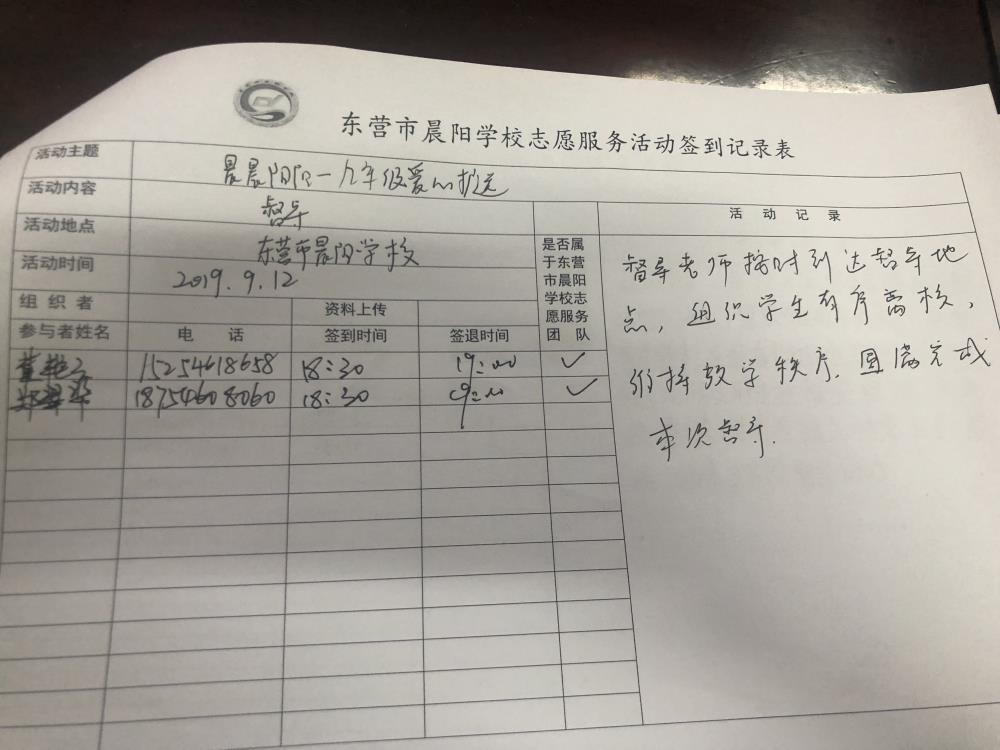 东营市晨阳学校志愿服务活动签到记录表
活动主题
晨晨阳阳一九年级爱心护送
活动内容
督导
活动地点
东营市晨阳学校
活动时间
2019.9.12
组织者
资料上传
参与者姓名
电话
签到时间
签退时间
是否属
于东营
市晨阳
学校志
愿服务
团队
15254618658 18:30 19:00 ✓
18754608060 18:30 19:00 ✓
活动记录
督导老师按时到达督导地
点,组织学生有序离校,
维持放学秩序.圆满完成
本次督导.